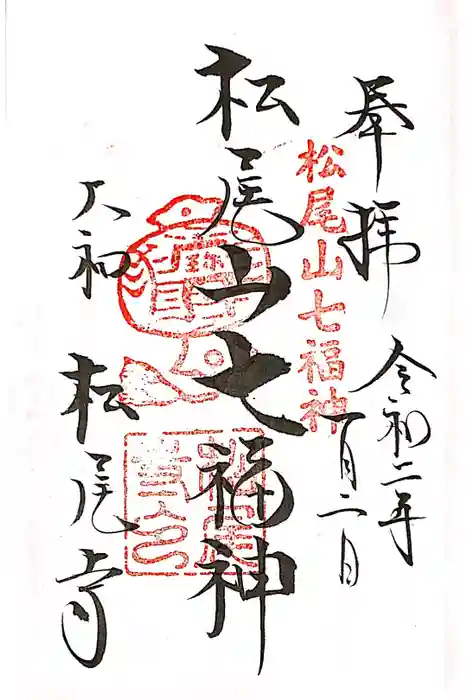 奉拝
令和二年
一月二日
松尾山七福神
松尾山七福神
大和
松尾寺